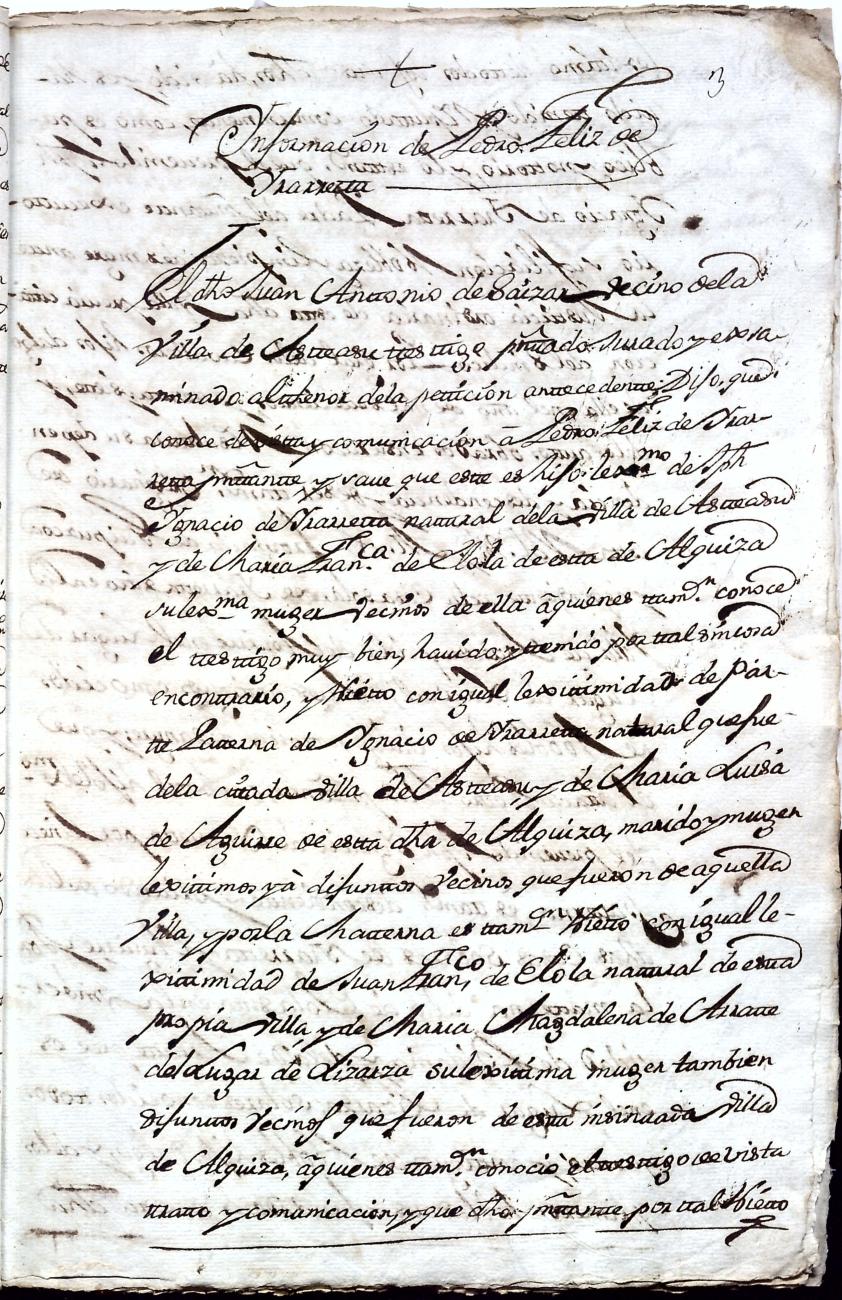 3
Ynformacion de Pedro Feliz de
Yrarretta
El dho Juan Anttonio de Saizar Vecino de la
Villa de Astteasu ttesttigo presenttado, Jurado y exsa-
minado al thenor de la petticion anttecedentte Dijo, que
conoce de vistta y comunicación â Pedro Feliz de Yrar-
retta pnttantte y save que estte es hijo lexmo de Jph
Ygnacio de Yrarretta nattural de la Villa de Astteasu
y de Maria Franca de Elola de estta de Alquiza
su lexma muger Vecinos de ella â quienes ttamvn conoce
el ttesttigo muy bien, havido, y ttenido por ttal sin cosa
en conttrario, y Nietto con igual lexittimidad de Par-
tte Patterna de Ygnacio de Yrarretta nattural que fue
de la cittada Villa de Astteasu, y de Maria Luisa
de Aguirre de estta dha de Alquiza, marido y muger
lexittimos yà difunttos Vecinos que fueron de aquella
Villa, y por la Matterna es ttamvn Nietto con igual le-
xittimidad de Juan Franco, de Elola nattural de estta
propia Villa, y de Maria Magdalena de Arratte
del Lugar de Lizarza su lexittima muger tambien
difunttos Vecinos que fueron de estta insinuada Villa
de Alquiza, â quienes ttamvn conociò el ttesttigo de vista
tratto y comunicacion, y que dho pnttantte por ttal Nietto